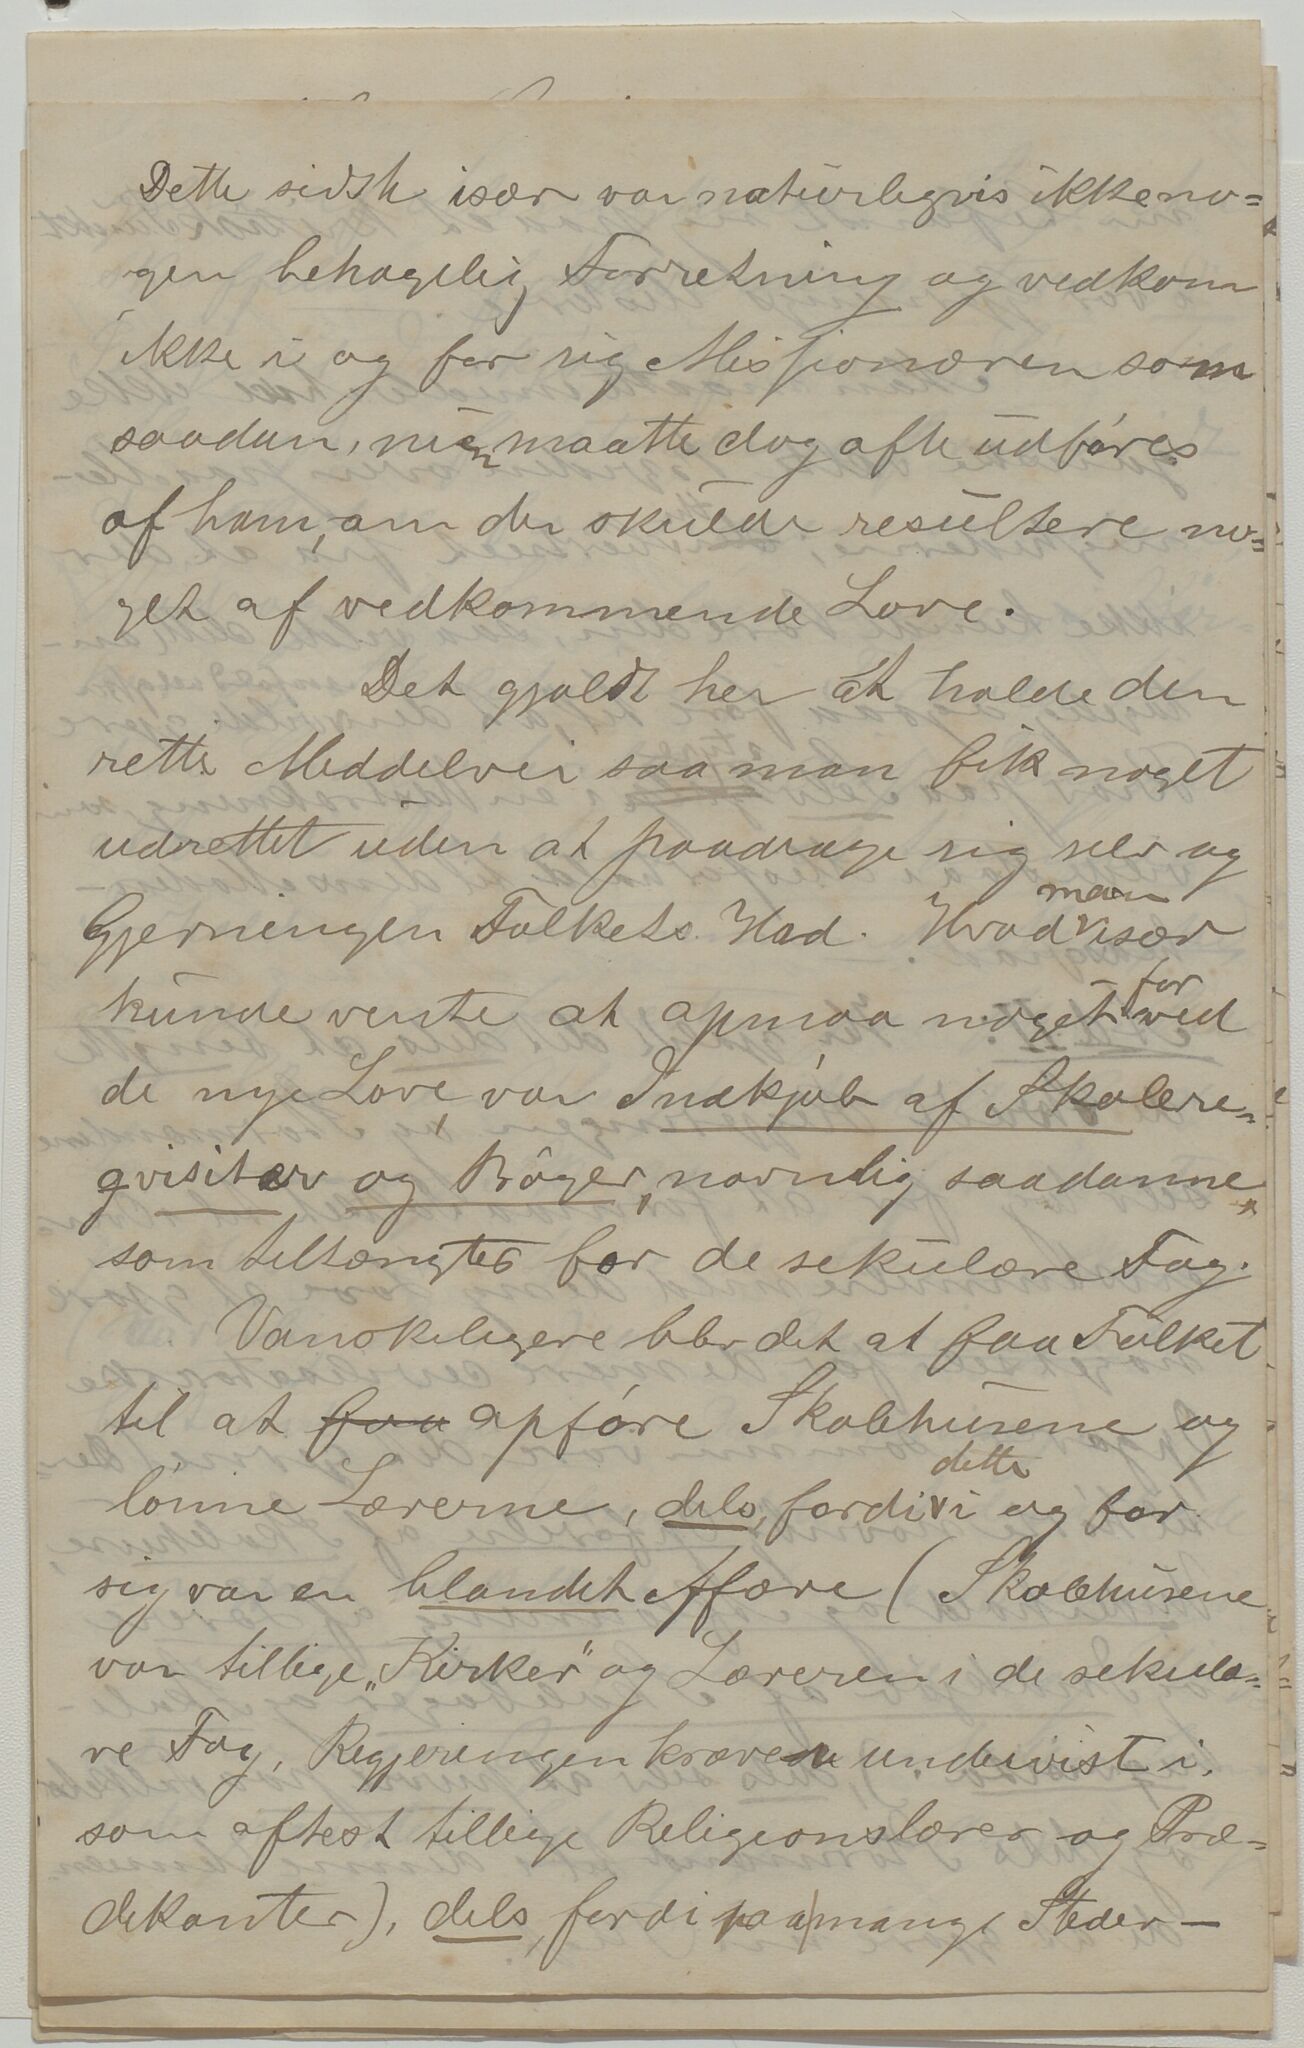 Dette sidste især var naturligvis ikke no=
gen behagelig Forretning og vedkom
ikke i og for sig Missionæren som
saadan, men maatte dog ofte udføres
af ham, om der skulde resultere no=
get af vedkommende Love.
Det gjaldt her at holde den
rette Meddelvei saa man fik noget
udrettet uden at paadrage sig selv og
Gjerningen Folkets Had. Hvad man især
kunde vente at opnaa noget for ved
de nye Love, var Indkjøb af Skolere=
qvisitær og Bøger, navnlig saadanne,
som tiltrængtes for de sekulære Fag.
Vanskeligere blev det at faa Folket
til at faa opføre Skolehusene og
lønne Lærerne, dels, fordi dette i og for
sig var en blandet Affære (Skolehusene
var tillige „Kirker" og Læreren i de sekulæ=
re Fag, Regjeringen krævede undervist i,
som oftest tillige Religionslærer og Præ=
dikanter), dels, fordi paa mange Steder —